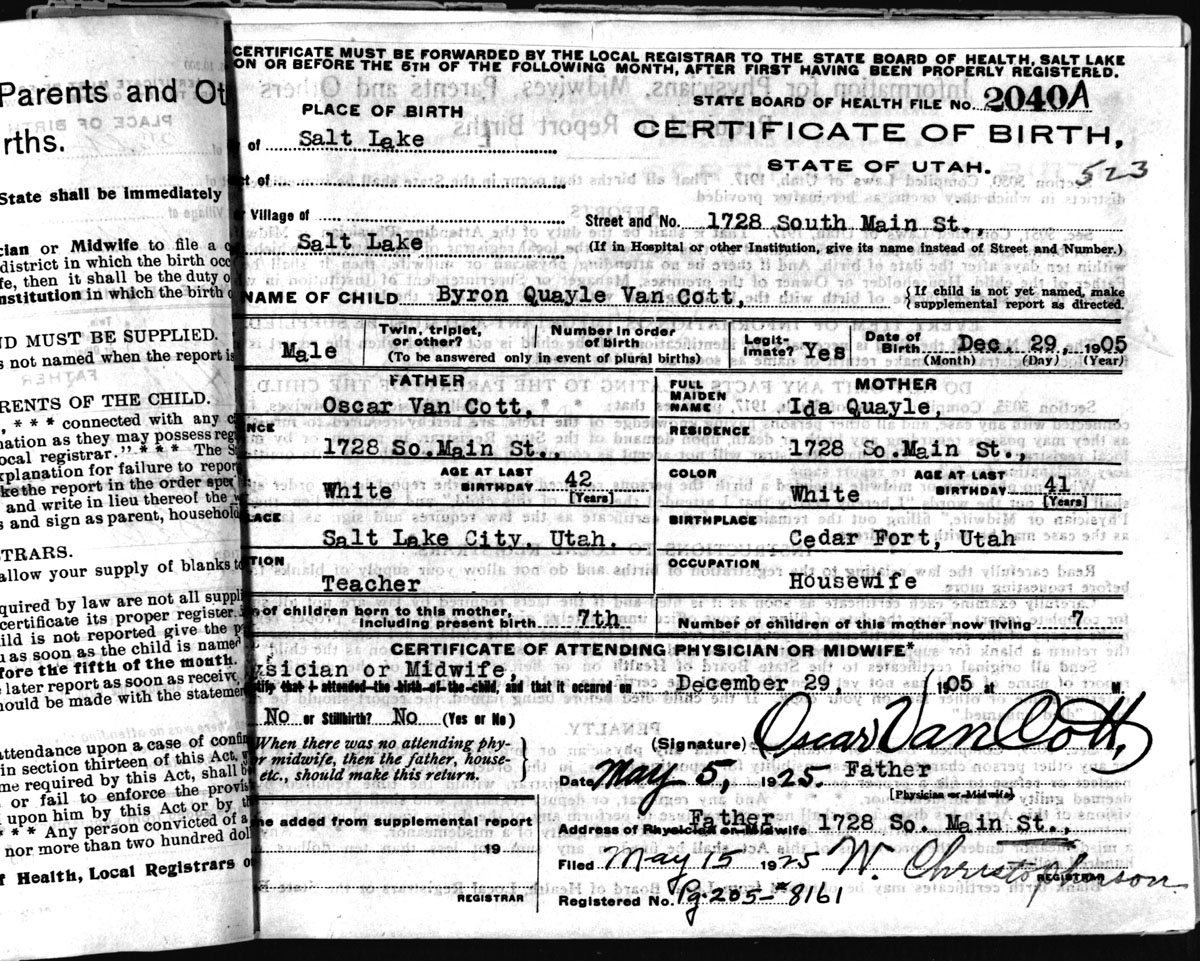 Parents and Ot
rths.
State shall be immediately
cian or Midwife to file a c
district in which the birth occ
fe, then it shall be the duty o
nstitution in which the birth
ND MUST BE SUPPLIED.
s not named when the report is
RENTS OF THE CHILD.
, * * * connected with any c
nation as they may possess reg
ocal registrar." * * * The S
xplanation for failure to report
ke the report in the order spec
and write in lieu thereof the w
s and sign as parent, household
STRARS.
allow your supply of blanks to
quired by law are not all suppli
certificate its proper register.
ild is not reported give the p
n as soon as the child is named
fore the fifth of the month.
e later report as soon as receive
hould be made with the statemen
attendance upon a case of confin
in section thirteen of this Act,
me required by this Act, shall b
or fail to enforce the provis
upon him by this Act or by t
* * * Any person convicted of a
nor more than two hundred doll
f Health, Local Registrars o
CERTIFICATE MUST BE FORWARDED BY THE LOCAL REGISTRAR TO THE STATE BOARD OF HEALTH, SALT LAKE
ON OR BEFORE THE 5TH OF THE FOLLOWING MONTH, AFTER FIRST HAVING BEEN PROPERLY REGISTERED.
PLACE OF BIRTH
STATE BOARD OF HEALTH FILE No. 2040A
of Salt Lake
CERTIFICATE OF BIRTH,
STATE OF UTAH.
523
ct of
r Village of
Street and No. 1728 South Main St.,
Salt Lake
(If in Hospital or other Institution, give its name instead of Street and Number.)
NAME OF CHILD Byron Quayle Van Cott,
{If child is not yet named, make
supplemental report as directed.
Male
Twin, triplet,
or other?
Number in order
of birth
(To be answered only in event of plural births)
Legit-
imate? Yes
Date of
Birth Dec. 29, 1905
(Month) (Day) (Year)
FATHER
Oscar Van Cott,
FULL
MAIDEN
NAME
MOTHER
Ida Quayle,
NCE
1728 So.Main St.,
RESIDENCE
1728 So.Main St.,
White
AGE AT LAST
BIRTHDAY 42
[Years]
COLOR
White
AGE AT LAST
BIRTHDAY 41
[Years]
LACE
Salt Lake City, Utah.
BIRTHPLACE
Cedar Fort, Utah
TION
Teacher
OCCUPATION
Housewife
of children born to this mother,
including present birth 7th
Number of children of this mother now living 7
CERTIFICATE OF ATTENDING PHYSICIAN OR MIDWIFE*
ysician or Midwife,
tify that I attended the birth of the child, and that it occured on December 29, 1905 at M.
No or Stillbirth? No (Yes or No)
When there was no attending phy-
or midwife, then the father, house-
etc., should make this return.
(Signature) Oscar Van Cott,
Date May 5, 1925. Father
[Physician or Midwife]
me added from supplemental report
19
REGISTRAR
Father
Address of Physician or Midwife 1728 So. Main St.,
Filed May 15 1925 W. Christopherson
REGISTRAR
Registered No. Pg. 205-*8161